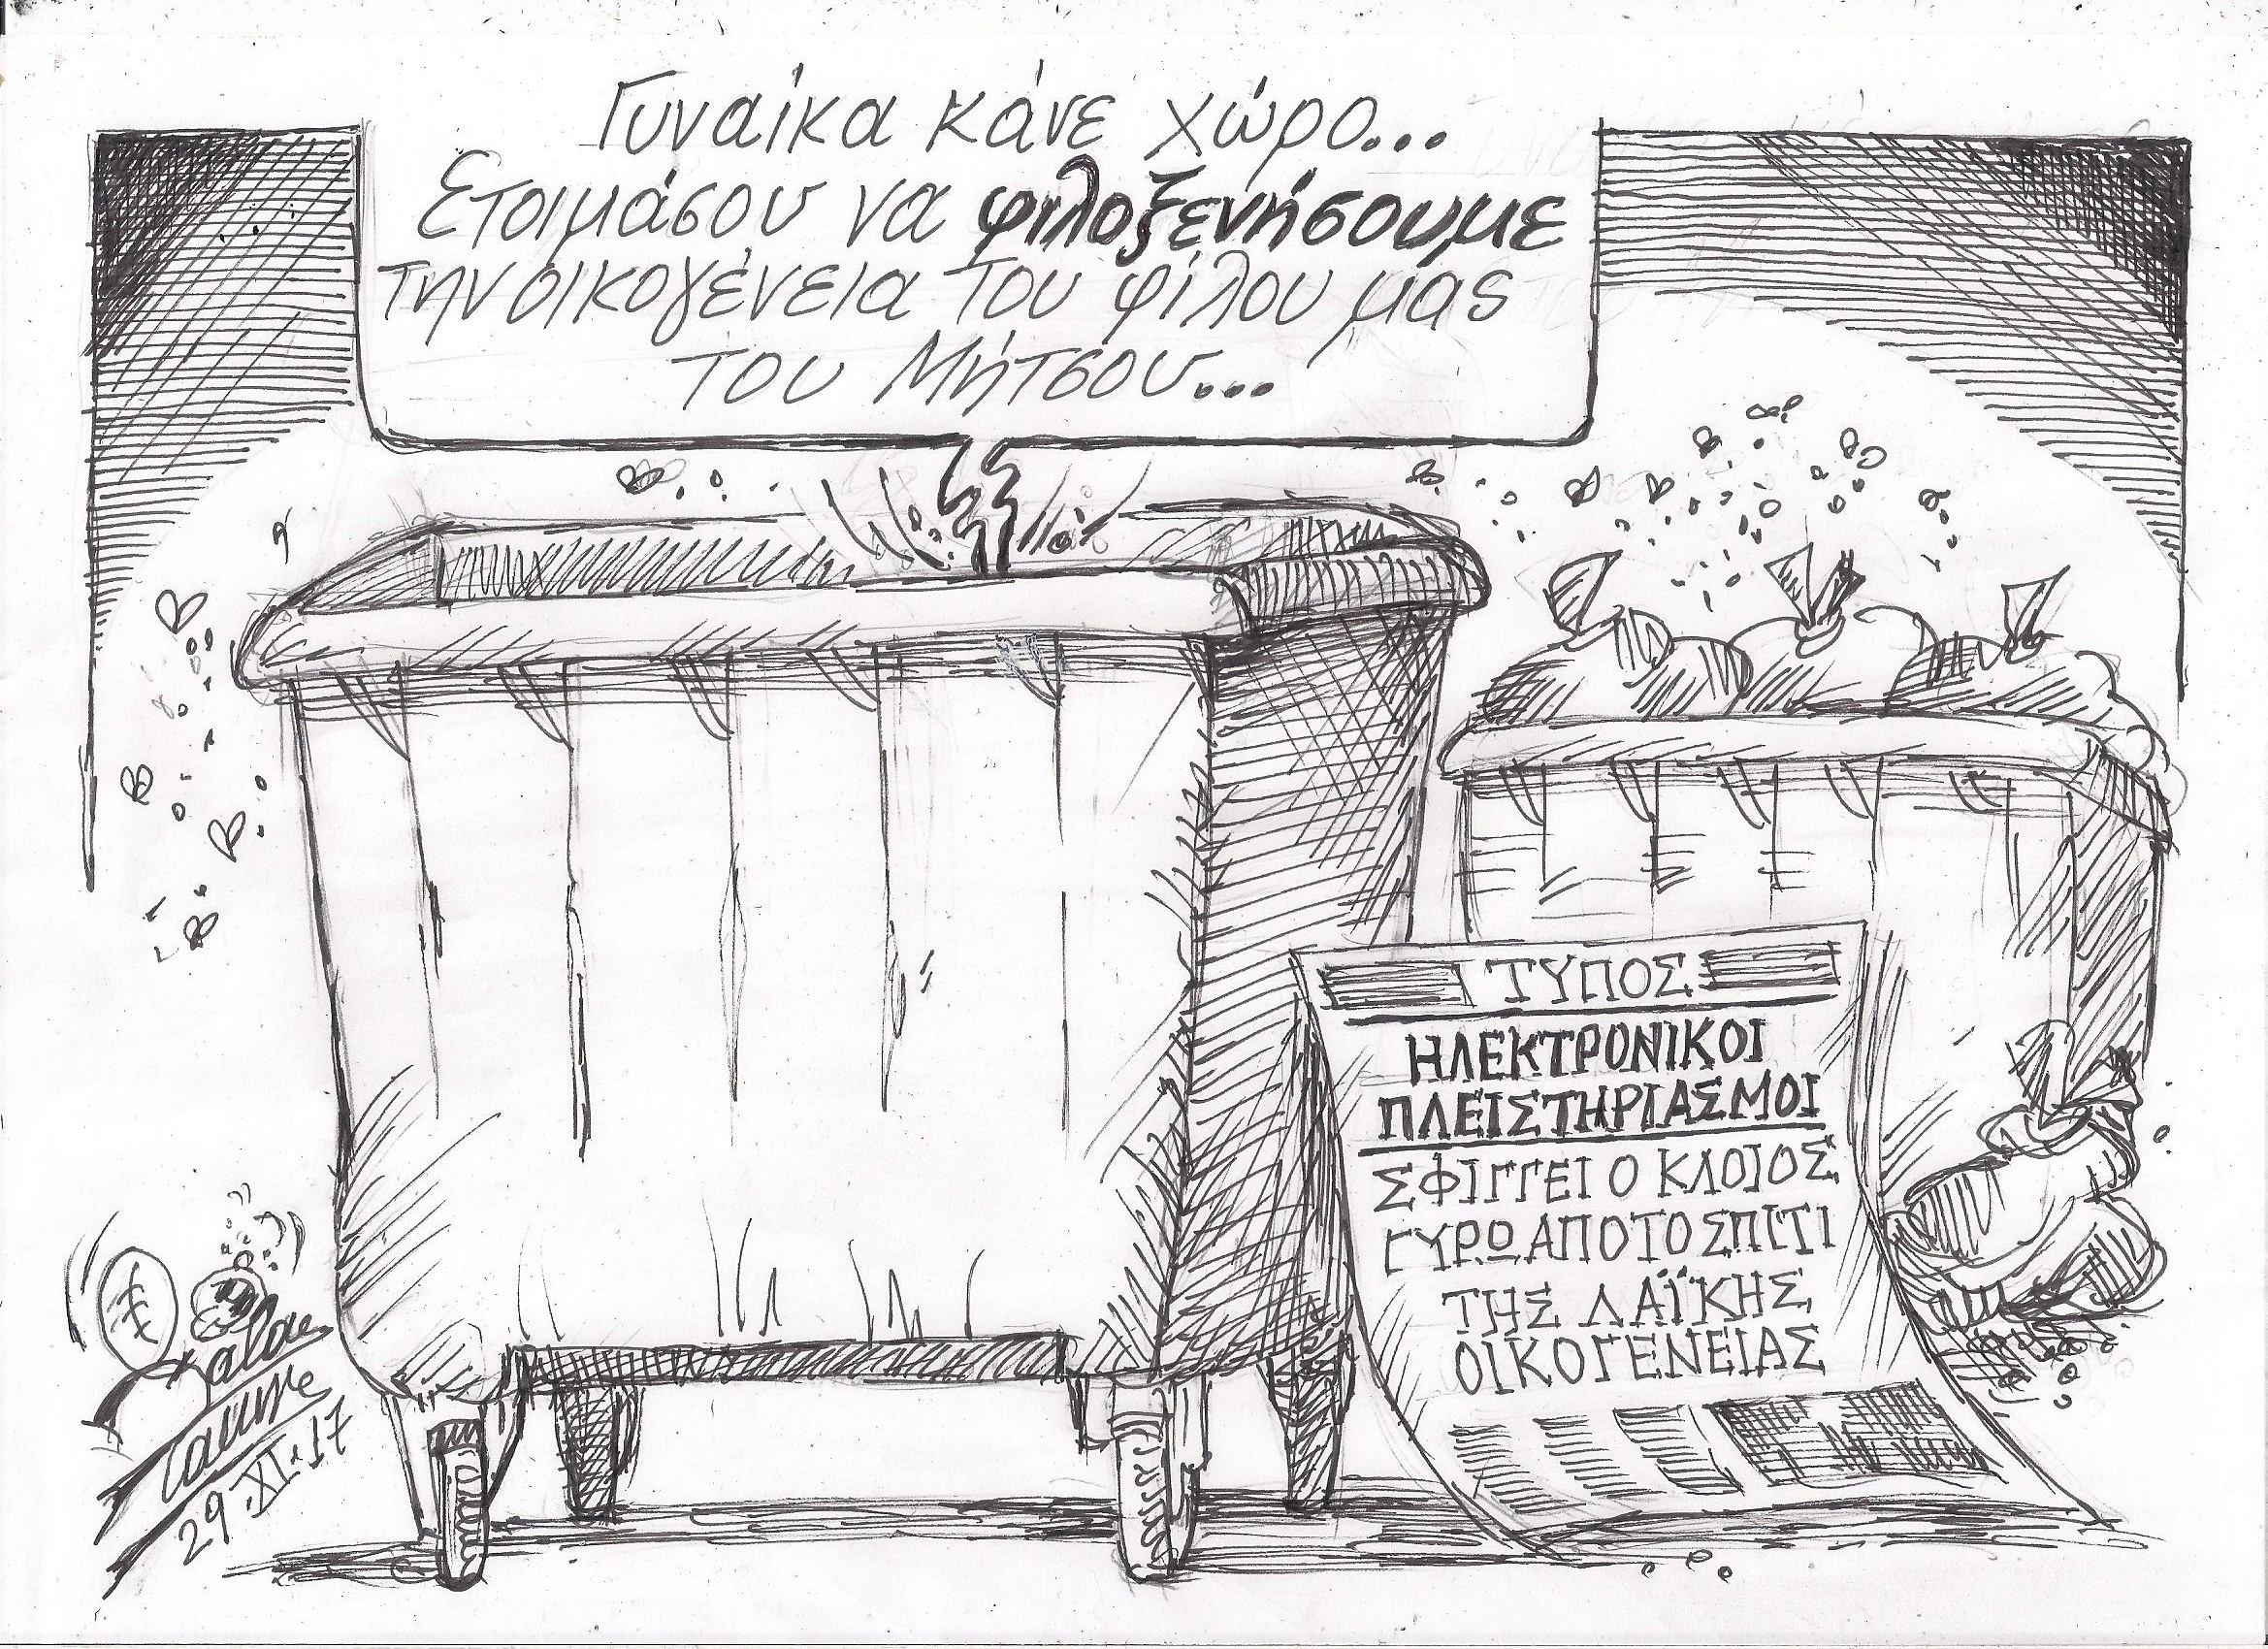 Γυναίκα κάνε χώρο...
Ετοιμάσου να φιλοξενήσουμε
την οικογένεια του φίλου μας
του Μήτσου...
ΤΥΠΟΣ
ΗΛΕΚΤΡΟΝΙΚΟΙ
ΠΛΕΙΣΤΗΡΙΑΣΜΟΙ
ΣΦΙΓΓΕΙ Ο ΚΛΟΙΟΣ
ΓΥΡΩ ΑΠΟ ΤΟ ΣΠΙΤΙ
ΤΗΣ ΛΑΪΚΗΣ
ΟΙΚΟΓΕΝΕΙΑΣ
29·XI·17